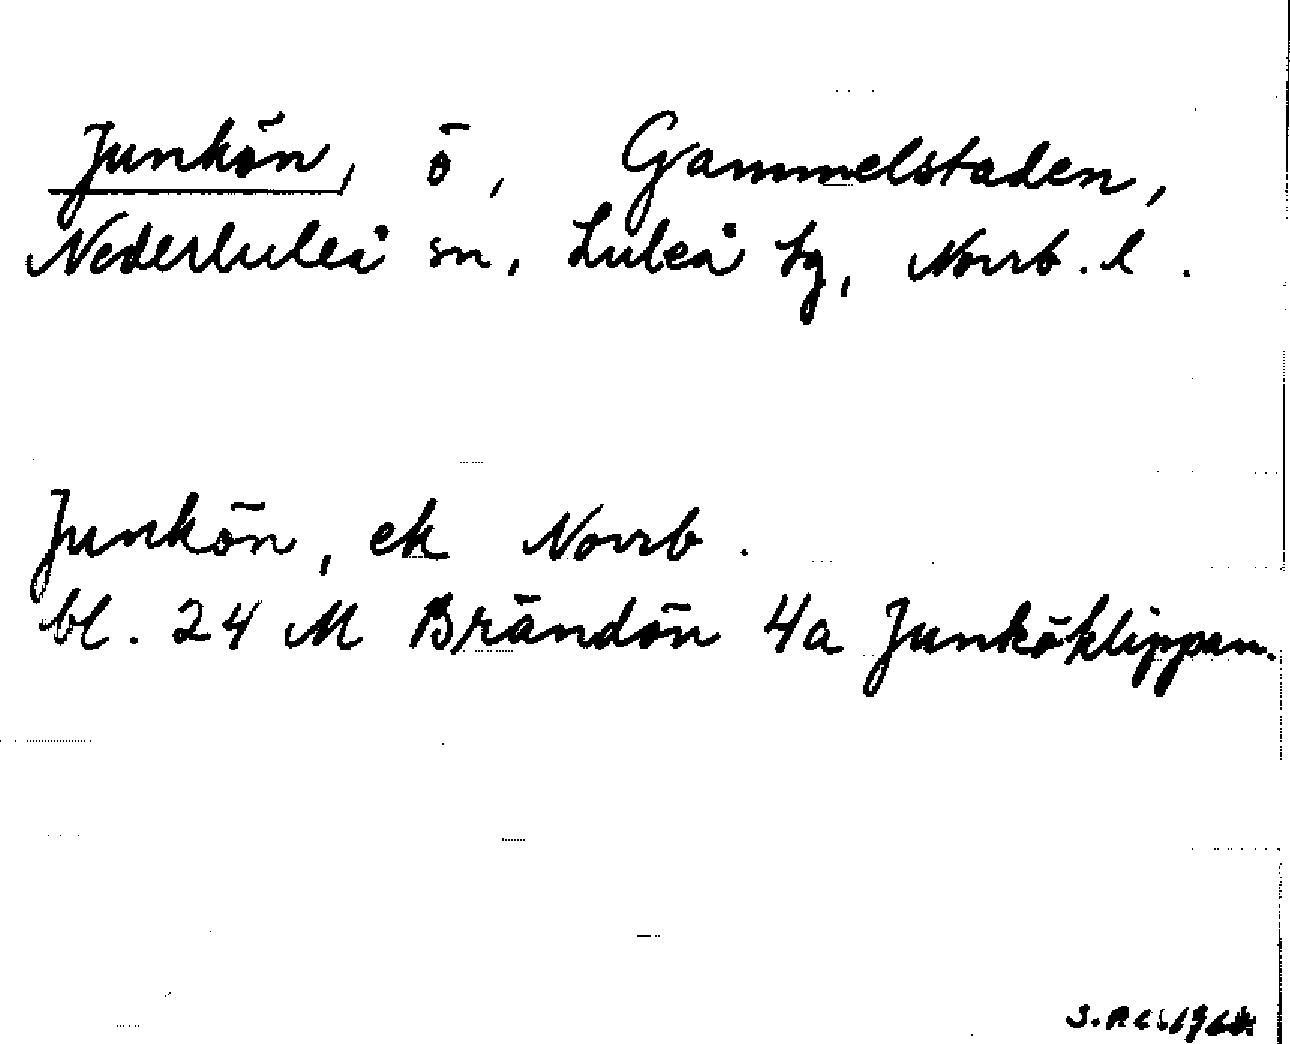 Junkön, ö, Gammelstaden,
Nederluleå sn, Luleå tg, Norrb. l.
Junkön, ek Norrb.
bl. 24 M Brändön 4a Junköklippan.